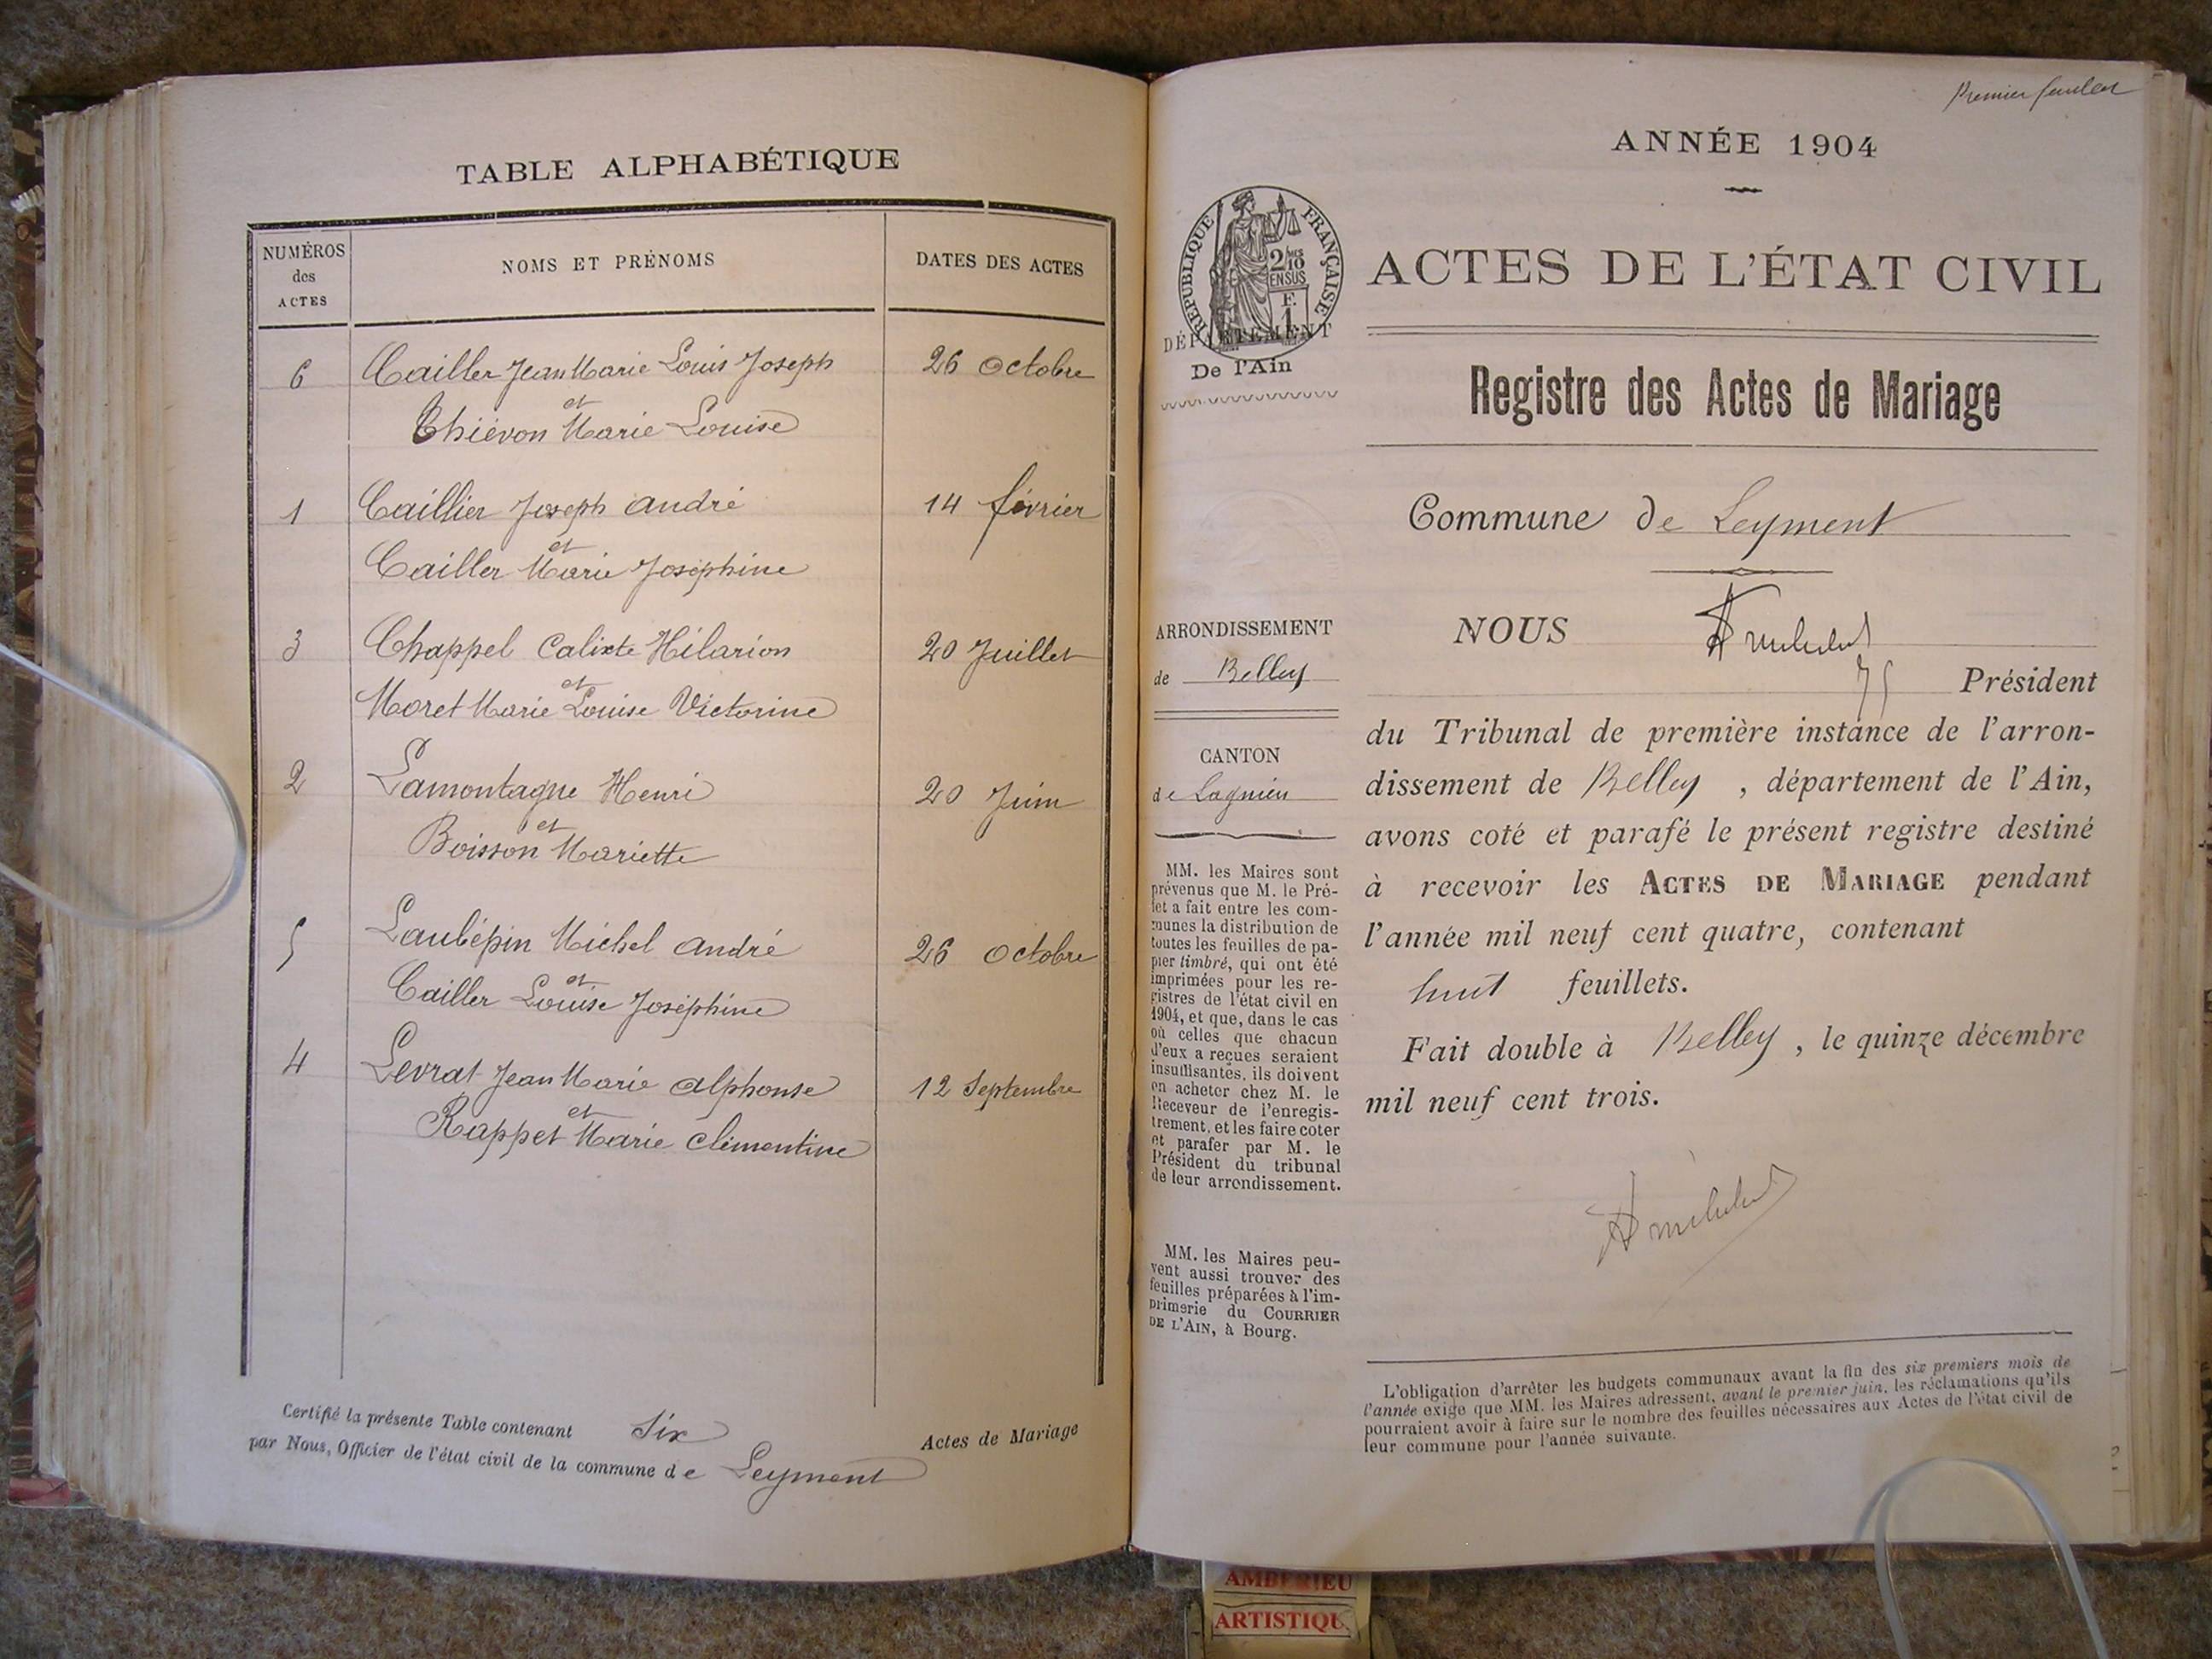 TABLE ALPHABÉTIQUE
NUMÉROS
des
ACTES
NOMS ET PRÉNOMS
DATES DES ACTES
6 Cailler Jean Marie Louis Joseph 26 Octobre
et
Thiévon Marie Louise
1 Caillier Joseph André 14 février
et
Cailler Marie Joséphine
3 Chappel Calixte Hilarion 20 Juillet
et
Moret Marie Louise Victorine
2 Lamontagne Henri 20 Juin
et
Boisson Mariette
5 Laubépin Michel André 26 Octobre
et
Cailler Louise Joséphine
4 Levrat Jean Marie Alphonse 12 Septembre
et
Rappet Marie Clémentine
Certifié la présente Table contenant Six Actes de Mariage
par Nous, Officier de l'état civil de la commune de Leyment
Premier feuillet
ANNÉE 1904
RÉPUBLIQUE FRANÇAISE
2/10
EN SUS
F.
1
DÉPARTEMENT
De l'Ain
ACTES DE L'ÉTAT CIVIL
Registre des Actes de Mariage
Commune de Leyment
ARRONDISSEMENT
de Belley
CANTON
de Lagnieu
MM. les Maires sont
prévenus que M. le Pré-
fet a fait entre les com-
munes la distribution de
toutes les feuilles de pa-
pier timbré, qui ont été
imprimées pour les re-
gistres de l'état civil en
1904, et que, dans le cas
où celles que chacun
d'eux a reçues seraient
insuffisantes, ils doivent
en acheter chez M. le
Receveur de l'enregis-
trement, et les faire coter
et parafer par M. le
Président du tribunal
de leur arrondissement.
MM. les Maires peu-
vent aussi trouver des
feuilles préparées à l'im-
primerie du COURRIER
DE L'AIN, à Bourg.
NOUS
Président
du Tribunal de première instance de l'arron-
dissement de Belley , département de l'Ain,
avons coté et parafé le présent registre destiné
à recevoir les ACTES DE MARIAGE pendant
l'année mil neuf cent quatre, contenant
huit feuillets.
Fait double à Belley , le quinze décembre
mil neuf cent trois.
L'obligation d'arrêter les budgets communaux avant la fin des six premiers mois de
l'année exige que MM. les Maires adressent, avant le premier juin, les réclamations qu'ils
pourraient avoir à faire sur le nombre des feuilles nécessaires aux Actes de l'état civil de
leur commune pour l'année suivante.
AMBERIEU
ARTISTIQU